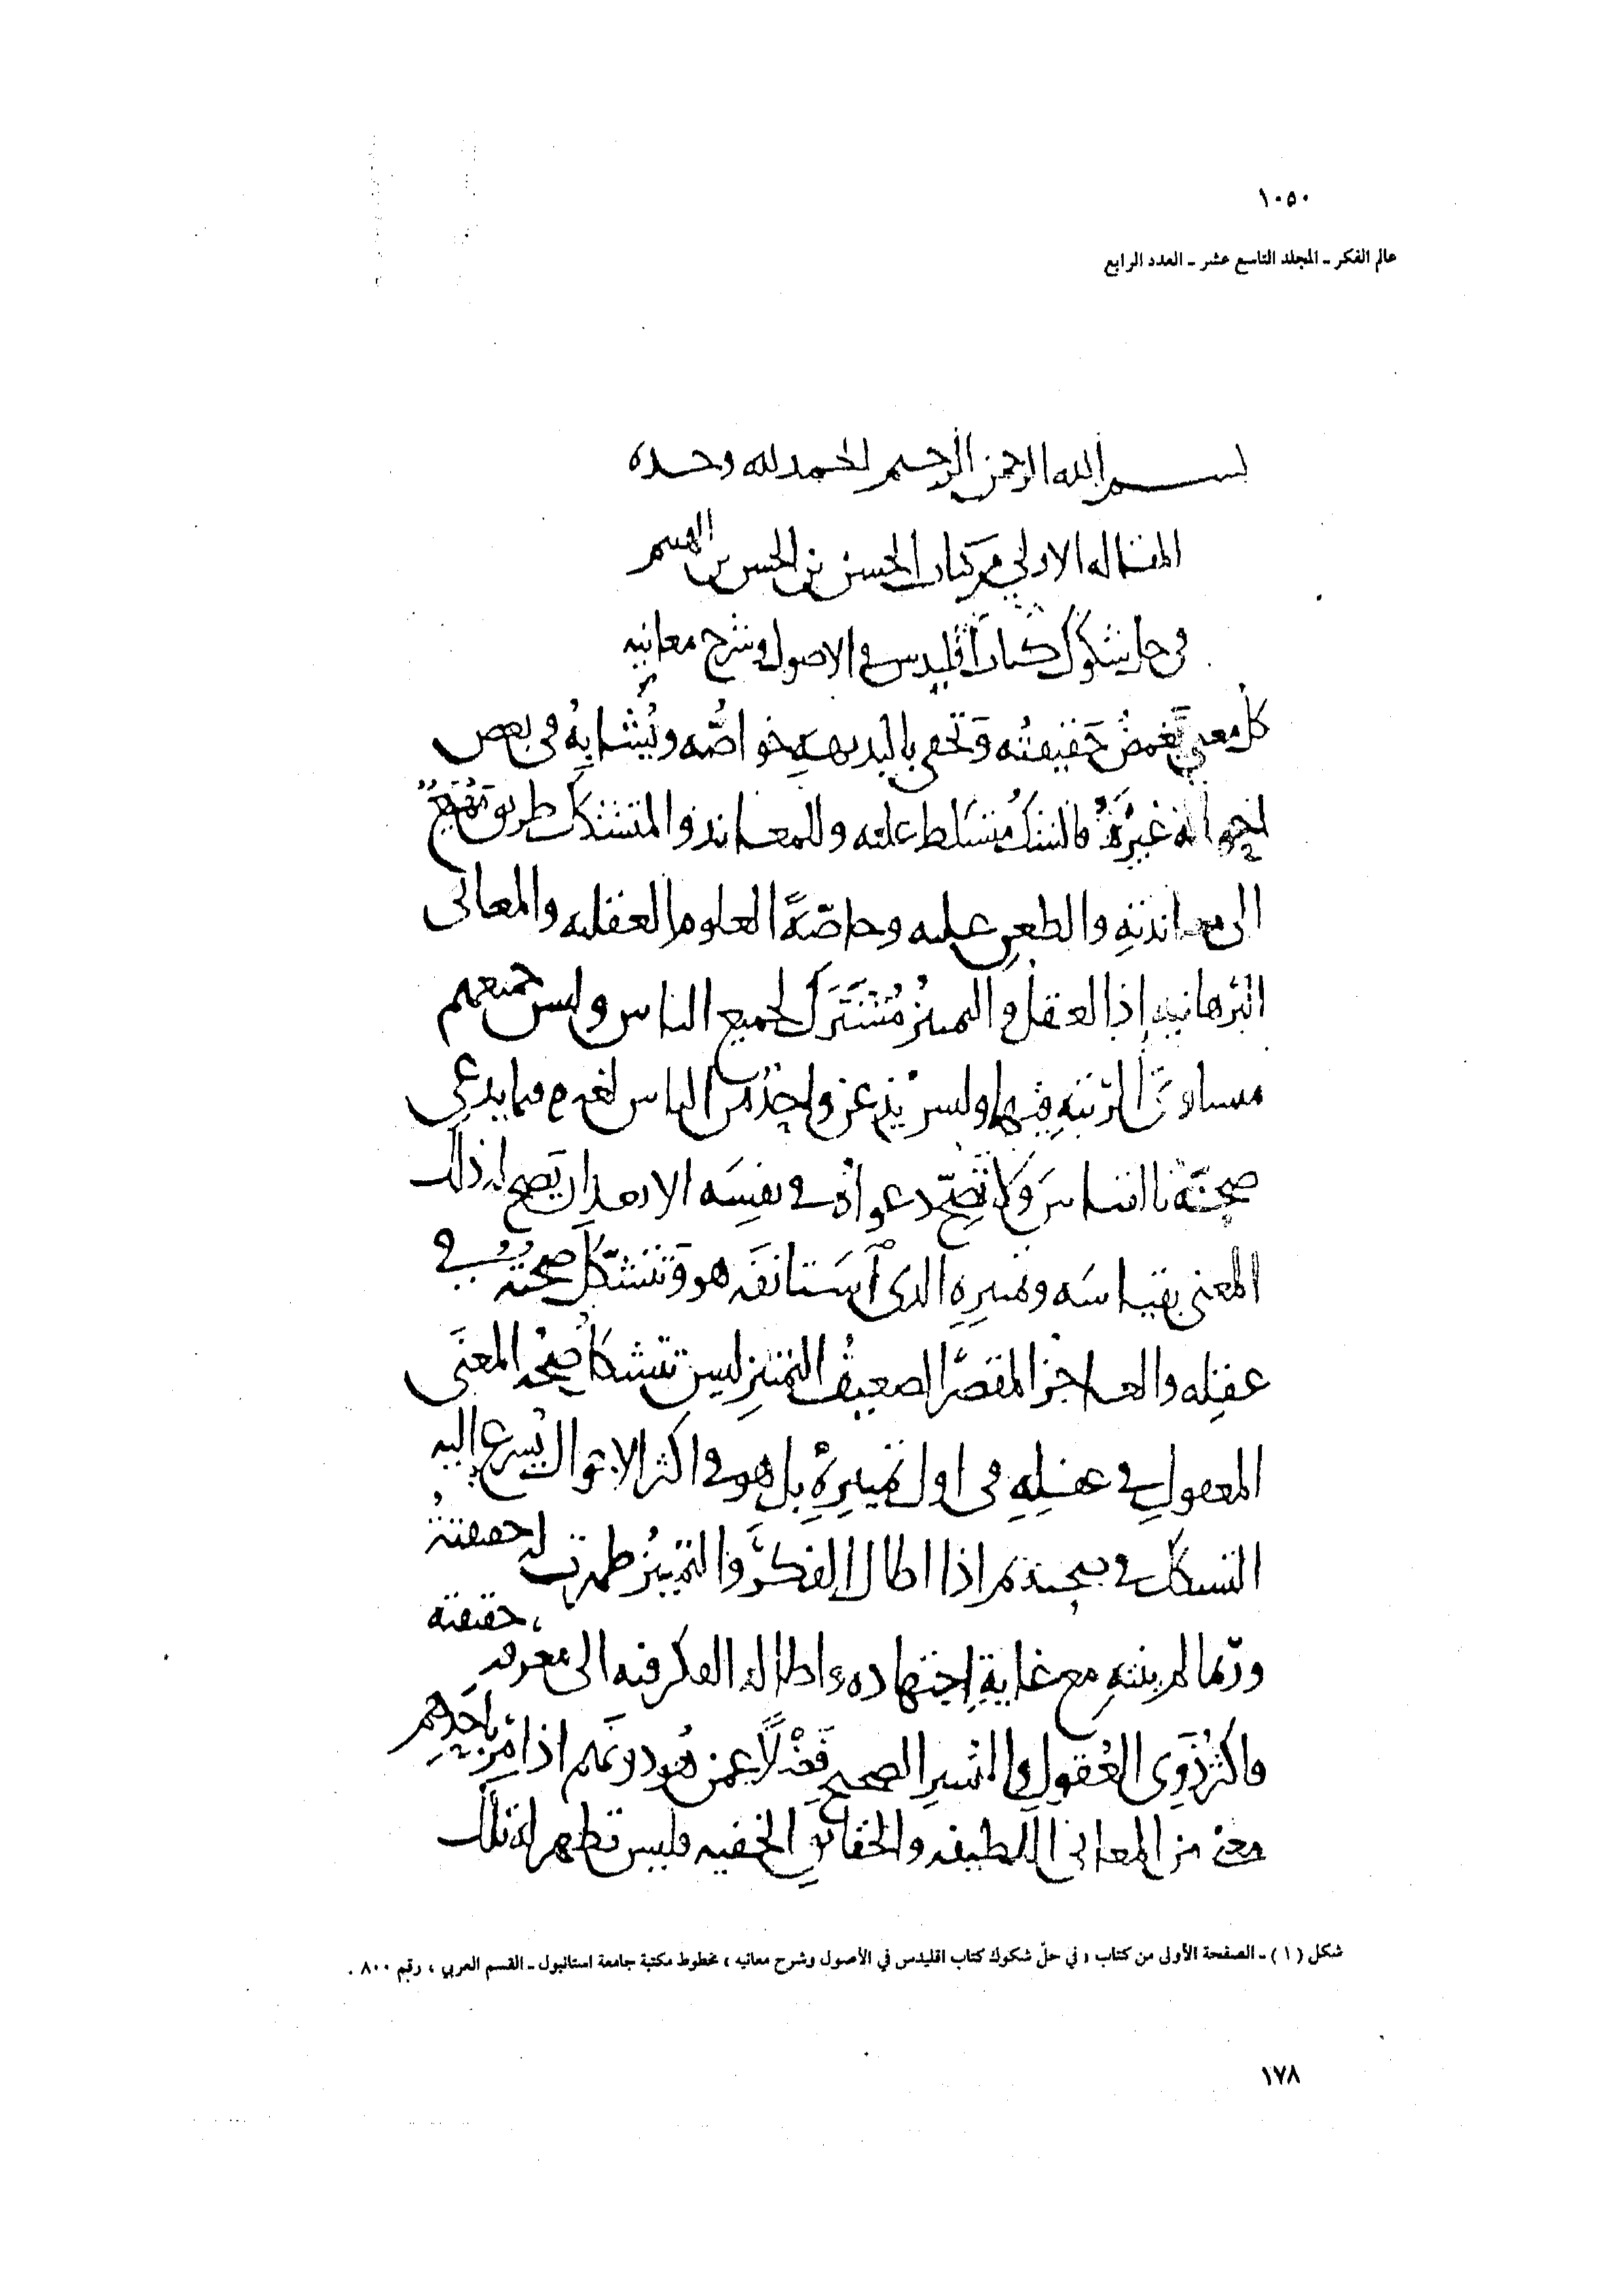 ١٠٥٠
عالم الفكر - المجلد التاسع عشر - العدد الرابع
بسم الله الرحمن الرحيم الحمد لله وحده
المقاله الاولى من كتاب الحسن بن الحسن بن الهيثم
في حل شكوك كتاب اقليدس في الاصول وشرح معانيه
كل معنى تغمض حقيقته وتخفى بالبديهة خواصه ويشابه في بعض
احواله غيره فالشك متسلط عليه وللمعاند والمتشكك طريق مهيع
الى معاندته والطعن عليه وخاصّة العلوم العقليه والمعاني
البرهانيه إذا العقل والتمييز مشترك لجميع الناس وليس جميعهم
متساوي الرتبة فيها وليس يذعن واحد من الناس لغيره فيما يدعي
صحته بالقياس ولا تصحّ دعواه في نفسه الا بعد ان يصح له ذلك
المعنى بقياسه وتمييزه الذي استأنفه هو وتتشكل صحته في
عقله والعاجز المقصّر الضعيف التمييز ليس تتشكل صحة المعنى
المعقول في عقله في اول تمييزه بل هو في اكثر الاحوال يسرع إليه
التشكك في صحته ثم اذا اطال الفكر والتمييز ظهرت له حقيقته
وربّما لم ينته مع غاية اجتهاده واطالة الفكر فيه الى معرفة حقيقته
واكثر ذوي العقول والتمييز الصحيح فضلاً عمن هو دونهم اذا مر باحدهم
معنى من المعاني اللطيفه والحقائق الخفيه فليس تظهر له تلك
شكل ( ١ ) - الصفحة الأولى من كتاب « في حلّ شكوك كتاب اقليدس في الأصول وشرح معانيه » مخطوط مكتبة جامعة استانبول - القسم العربي ، رقم ٨٠٠ .
١٧٨